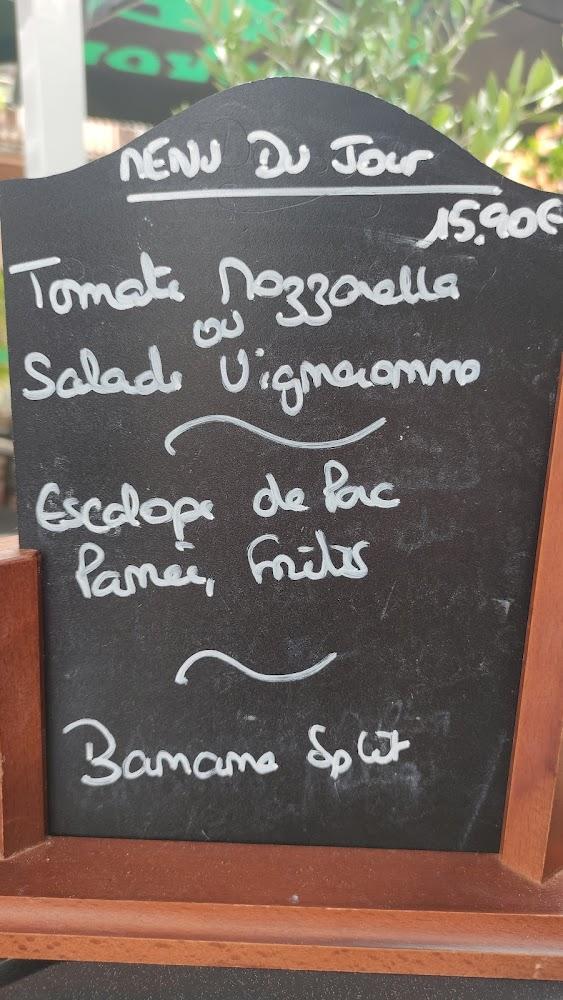 MENU DU JOUR
15,90€
Tomate Mozzarella
ou
Salade Vigneronne
Escalope de Porc
Panée, Frites
Banane Split